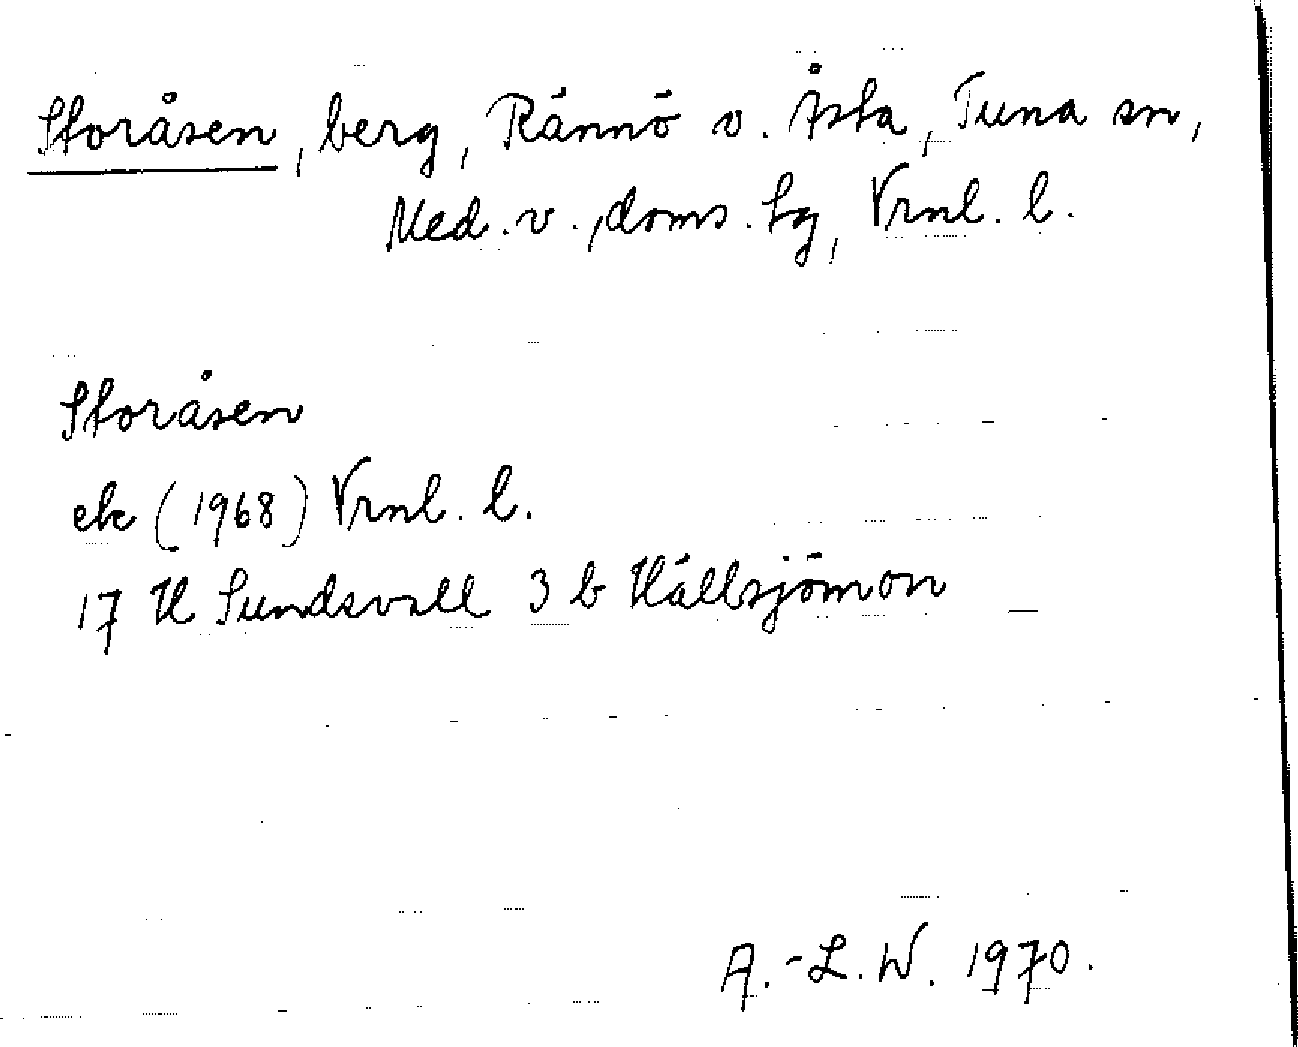 Storåsen, berg, Rännö v. Åsta, Tuna sn,
Med. v., doms. hg, Vrnl. l.
Storåsen
ek (1968) Vrnl. l.
17 H Sundsvall 3 b Hällsjömon
A.-L.W. 1970.